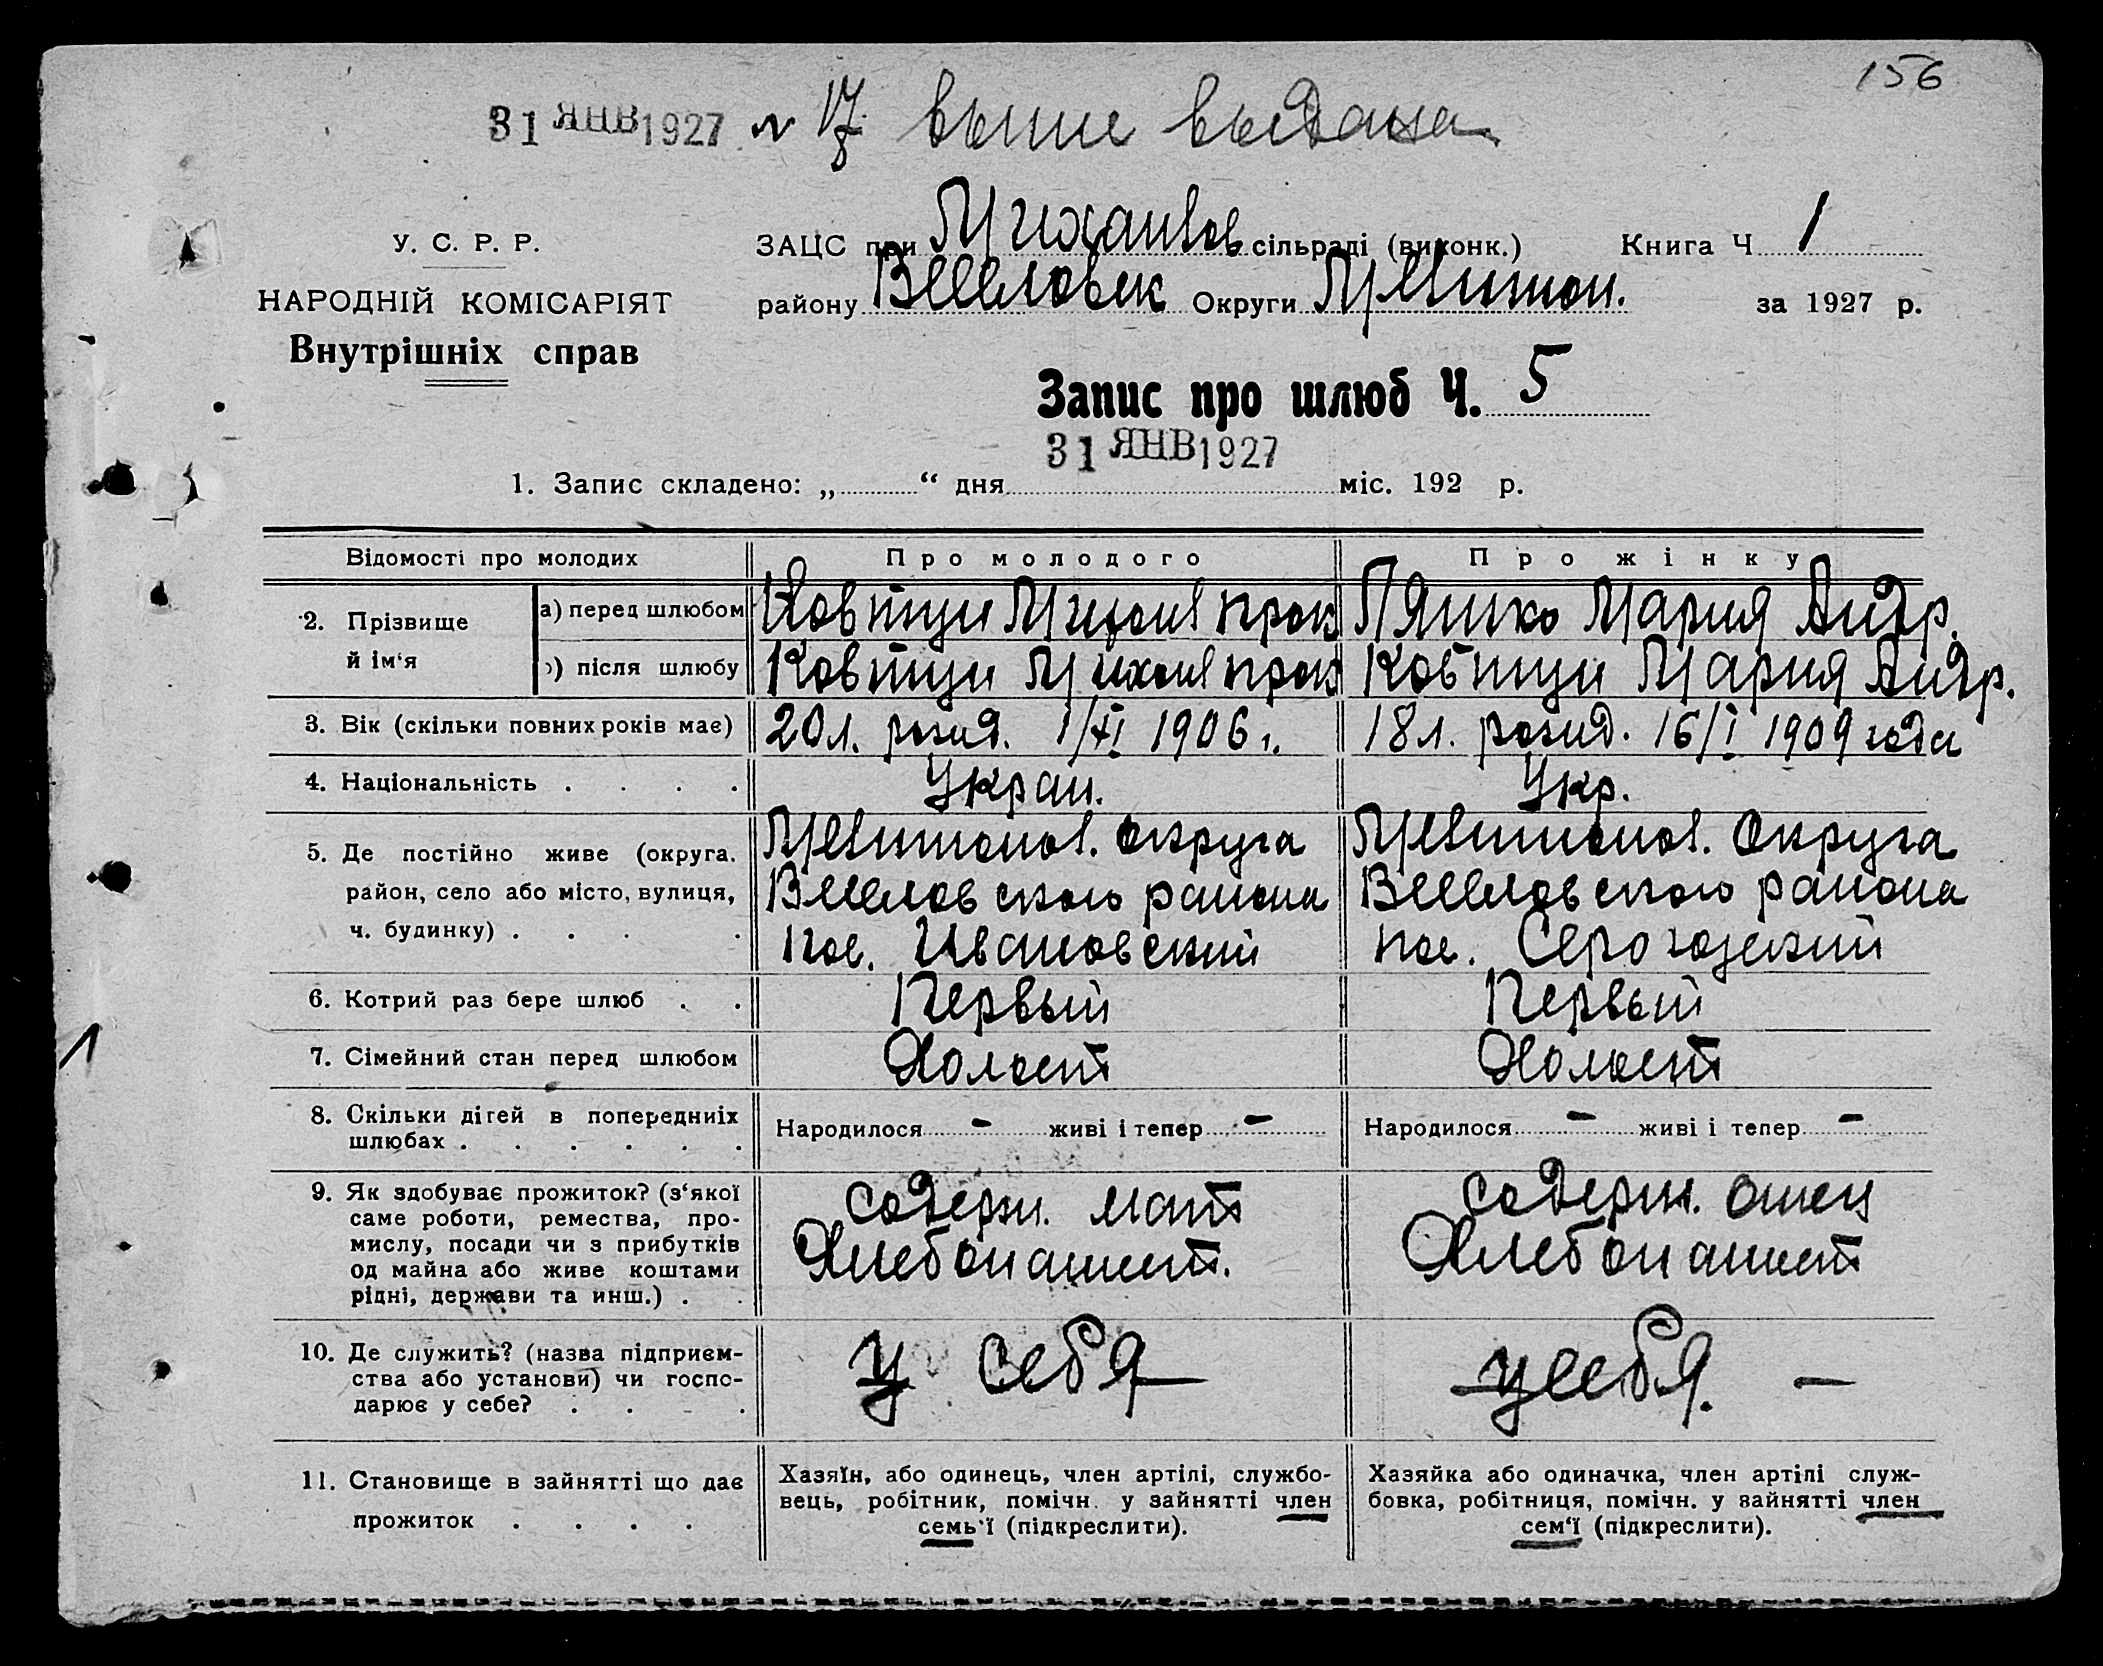 156
31 ЯНВ 1927 № 17 выпис выдана
У. С. Р. Р.
НАРОДНІЙ КОМІСАРІЯТ
Внутрішніх справ
ЗАЦС при Михайлов. сільраді (виконк.) Книга Ч 1
району Веселовск Округи Мелитоп. за 1927 р.
Запис про шлюб Ч. 5
31 ЯНВ 1927
1. Запис складено: „ “ дня міс. 192 р.
Відомості про молодих Про молодого Про жінку
2. Прізвище й ім‘я
а) перед шлюбом Ковтун Михаил Прок Ляшко Мария Андр.
б) після шлюбу Ковтун Михаил Прок Ковтун Мария Андр.
3. Вік (скільки повних років має) 20 л. рожд. 1/XI 1906 г. 18 л. рожд. 16/I 1909 года
4. Національність . . . . Украи. Укр.
5. Де постійно живе (округа, район, село або місто, вулиця, ч. будинку) . . . .
Мелитопол. округа
Веселовского района
пос. Ивановский
Мелитопол. Округа
Веселовского района
пос. Серогозский
6. Котрий раз бере шлюб . . Первый Первый
7. Сімейний стан перед шлюбом Холост Холост
8. Скільки дітей в попередниіх
шлюбах . . . . . .
Народилося - живі і тепер - Народилося - живі і тепер -
9. Як здобуває прожиток? (з‘якої
саме роботи, ремества, про-
мислу, посади чи з прибутків
од майна або живе коштами
рідні, держави та инш.) . .
содерж. мат
Хлебопашест.
содерж. отец
Хлебопашест
10. Де служить? (назва підприєм-
ства або установи) чи госпо-
дарює у себе? . . . .
у себя
у себя. —
11. Становище в зайнятті що дає
прожиток . . . .
Хазяїн, або одинець, член артілі, службо-
вець, робітник, помічн. у зайнятті член
семь‘ї (підкреслити).
Хазяйка або одиначка, член артілі служ-
бовка, робітниця, помічн. у зайнятті член
сем‘ї (підкреслити).